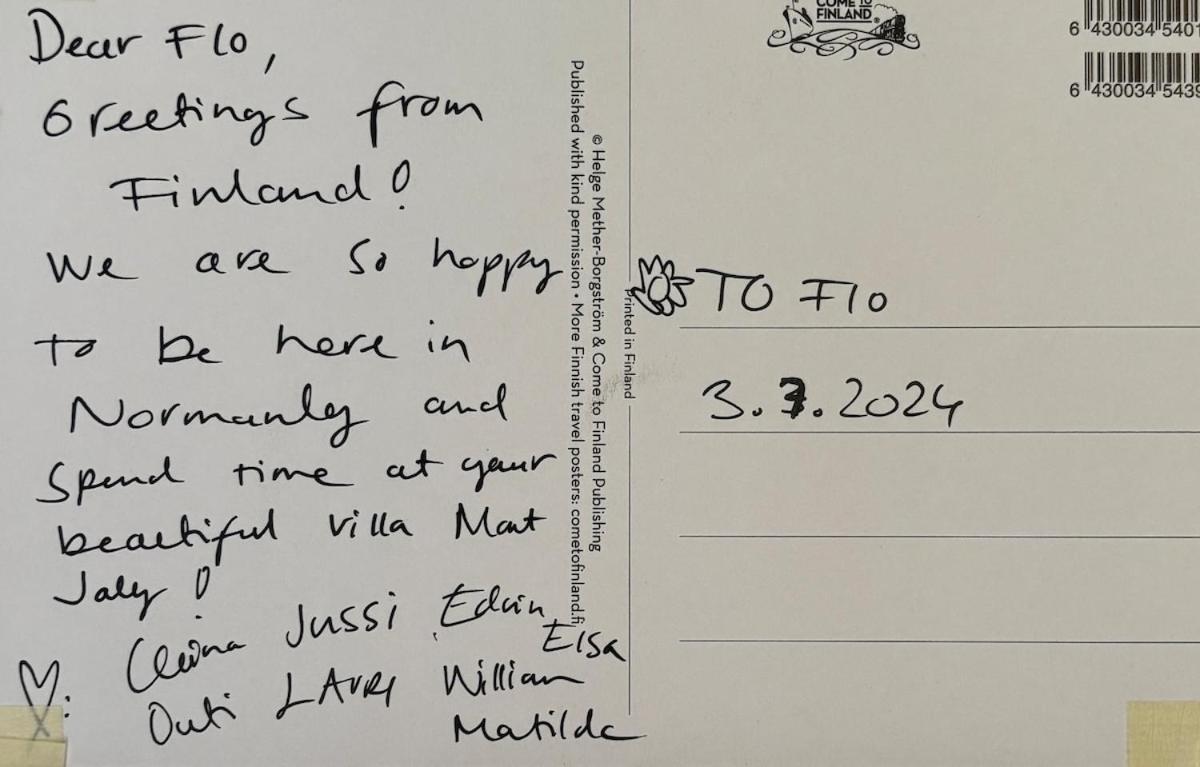 Dear Flo,
Greetings from
Finland!
We are so happy
to be here in
Normandy and
spend time at your
beautiful Villa Mont
Joly!
Jussi Edvin
Elsa
Outi LAURI William
Matilda
© Helge Mether-Borgström & Come to Finland Publishing
Published with kind permission • More Finnish travel posters: cometofinland.fi
Printed in Finland
COME TO
FINLAND
6 430034 5401
6 430034 5439
TO Flo
3.7.2024